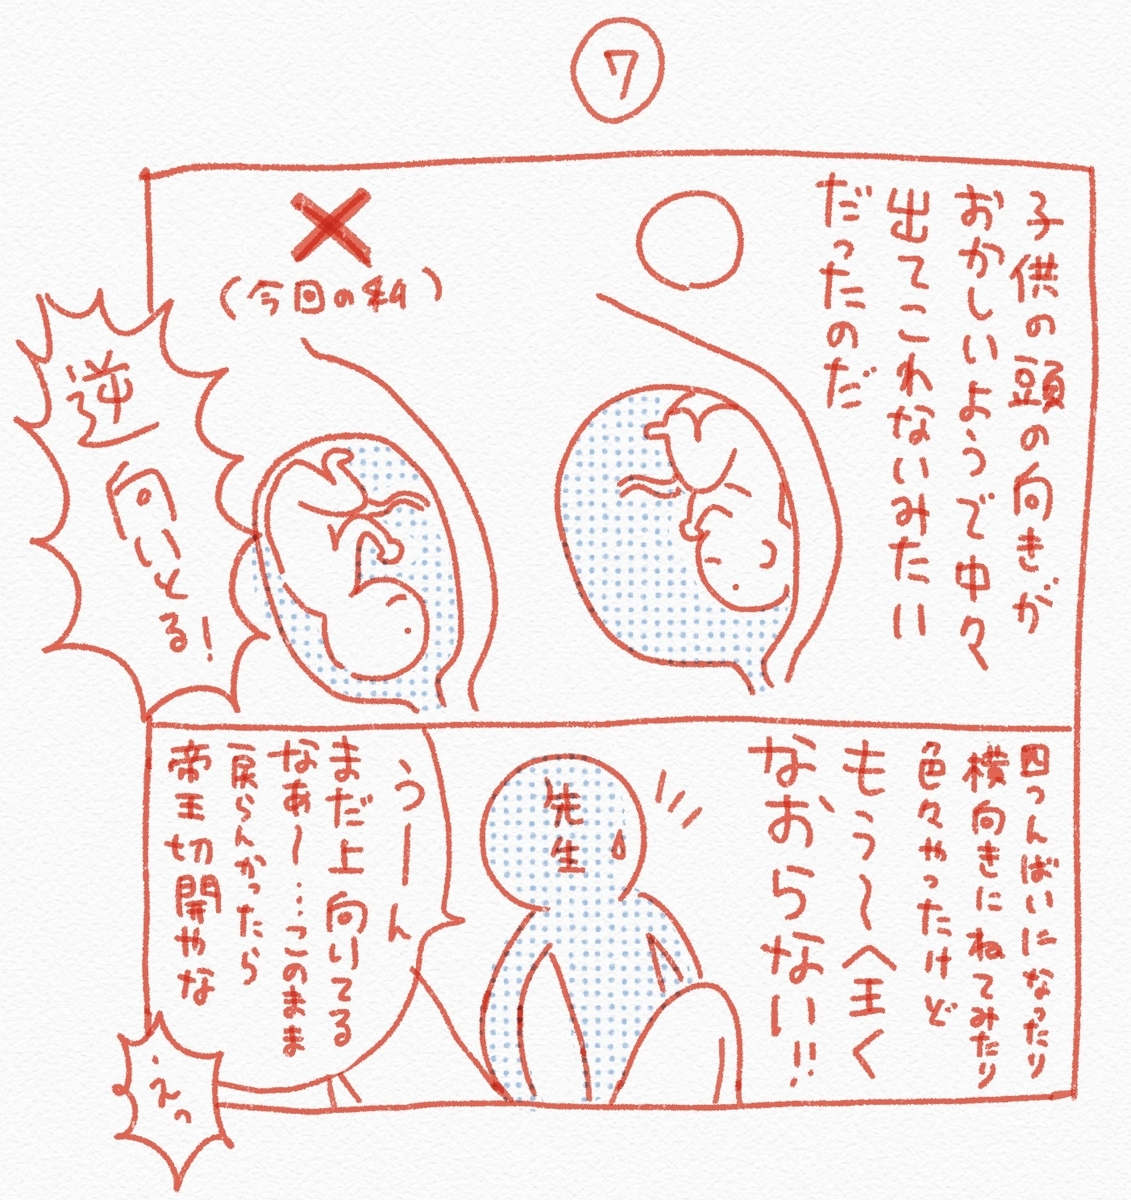 7
子供の頭の向きが
おかしいようで中々
出てこれないみたい
だったのだ
(今回の私)
逆
向いとる!
四つんばいになったり
横向きにねてみたり
色々やったけど
もう〜全く
なおらない!!
先生
うーん
まだ上向いてる
なあ〜…このまま
戻らんかったら
帝王切開やな
えっ